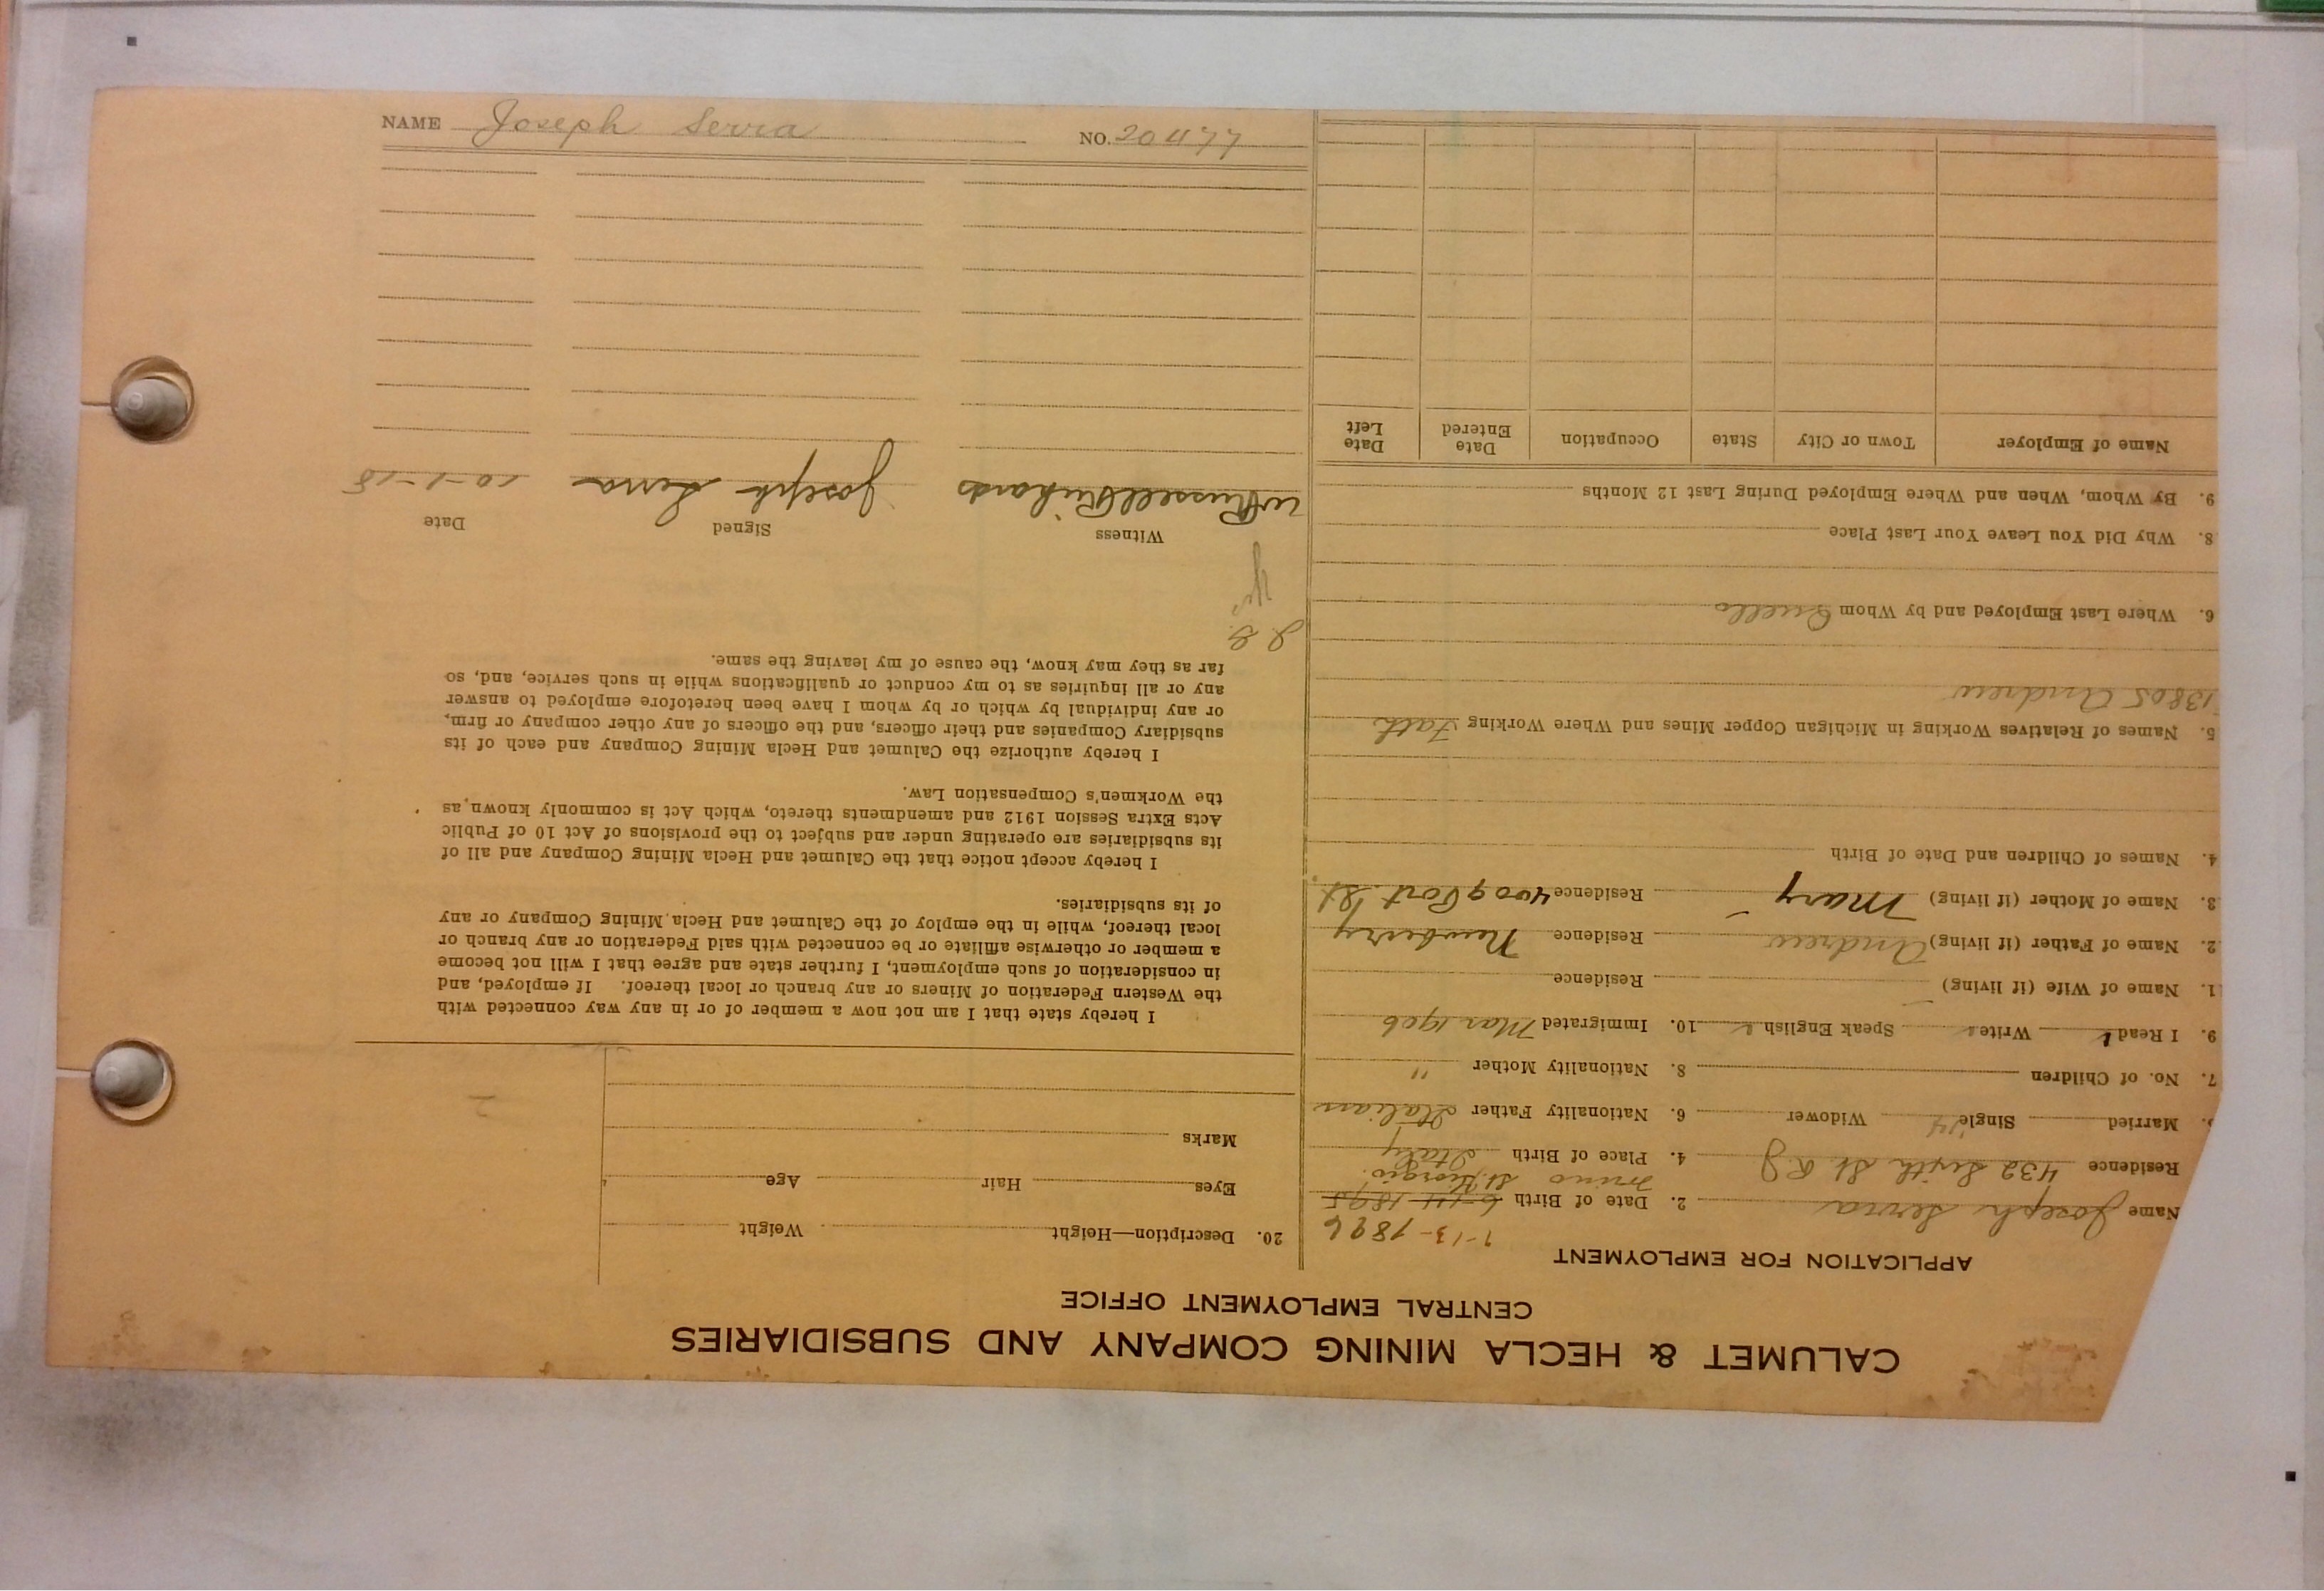 CALUMET & HECLA MINING COMPANY AND SUBSIDIARIES
CENTRAL EMPLOYMENT OFFICE
APPLICATION FOR EMPLOYMENT
1-13-1896
Name Joseph Serra 2. Date of Birth 6-14-1895
St. Giorgio
Residence 432 Sixth St. 4. Place of Birth Italy
Married Single Widower 6. Nationality Father Italian
7. No. of Children 8. Nationality Mother "
9. I Read Write Speak English 10. Immigrated Mar 1906
1. Name of Wife (if living) Residence
2. Name of Father (if living) Andrew Residence Newberry
3. Name of Mother (if living) Mary Residence 4009 St.
4. Names of Children and Date of Birth
5. Names of Relatives Working in Michigan Copper Mines and Where Working Fath
13805 Andrew
6. Where Last Employed and by Whom
8. Why Did You Leave Your Last Place
9. By Whom, When and Where Employed During Last 12 Months
Name of Employer Town or City State Occupation Date Entered Date Left
20. Description—Height Weight
Eyes Hair Age
Marks
I hereby state that I am not now a member of or in any way connected with
the Western Federation of Miners or any branch or local thereof. If employed, and
in consideration of such employment, I further state and agree that I will not become
a member or otherwise affiliate or be connected with said Federation or any branch or
local thereof, while in the employ of the Calumet and Hecla Mining Company or any
of its subsidiaries.
I hereby accept notice that the Calumet and Hecla Mining Company and all of
its subsidiaries are operating under and subject to the provisions of Act 10 of Public
Acts Extra Session 1912 and amendments thereto, which Act is commonly known as
the Workmen's Compensation Law.
I hereby authorize the Calumet and Hecla Mining Company and each of its
subsidiary Companies and their officers, and the officers of any other company or firm,
or any individual by which or by whom I have been heretofore employed to answer
any or all inquiries as to my conduct or qualifications while in such service, and, so
far as they may know, the cause of my leaving the same.
Witness Signed Date
W Russell Richards Joseph Serra 10-1-18
NAME Joseph Serra NO. 20477